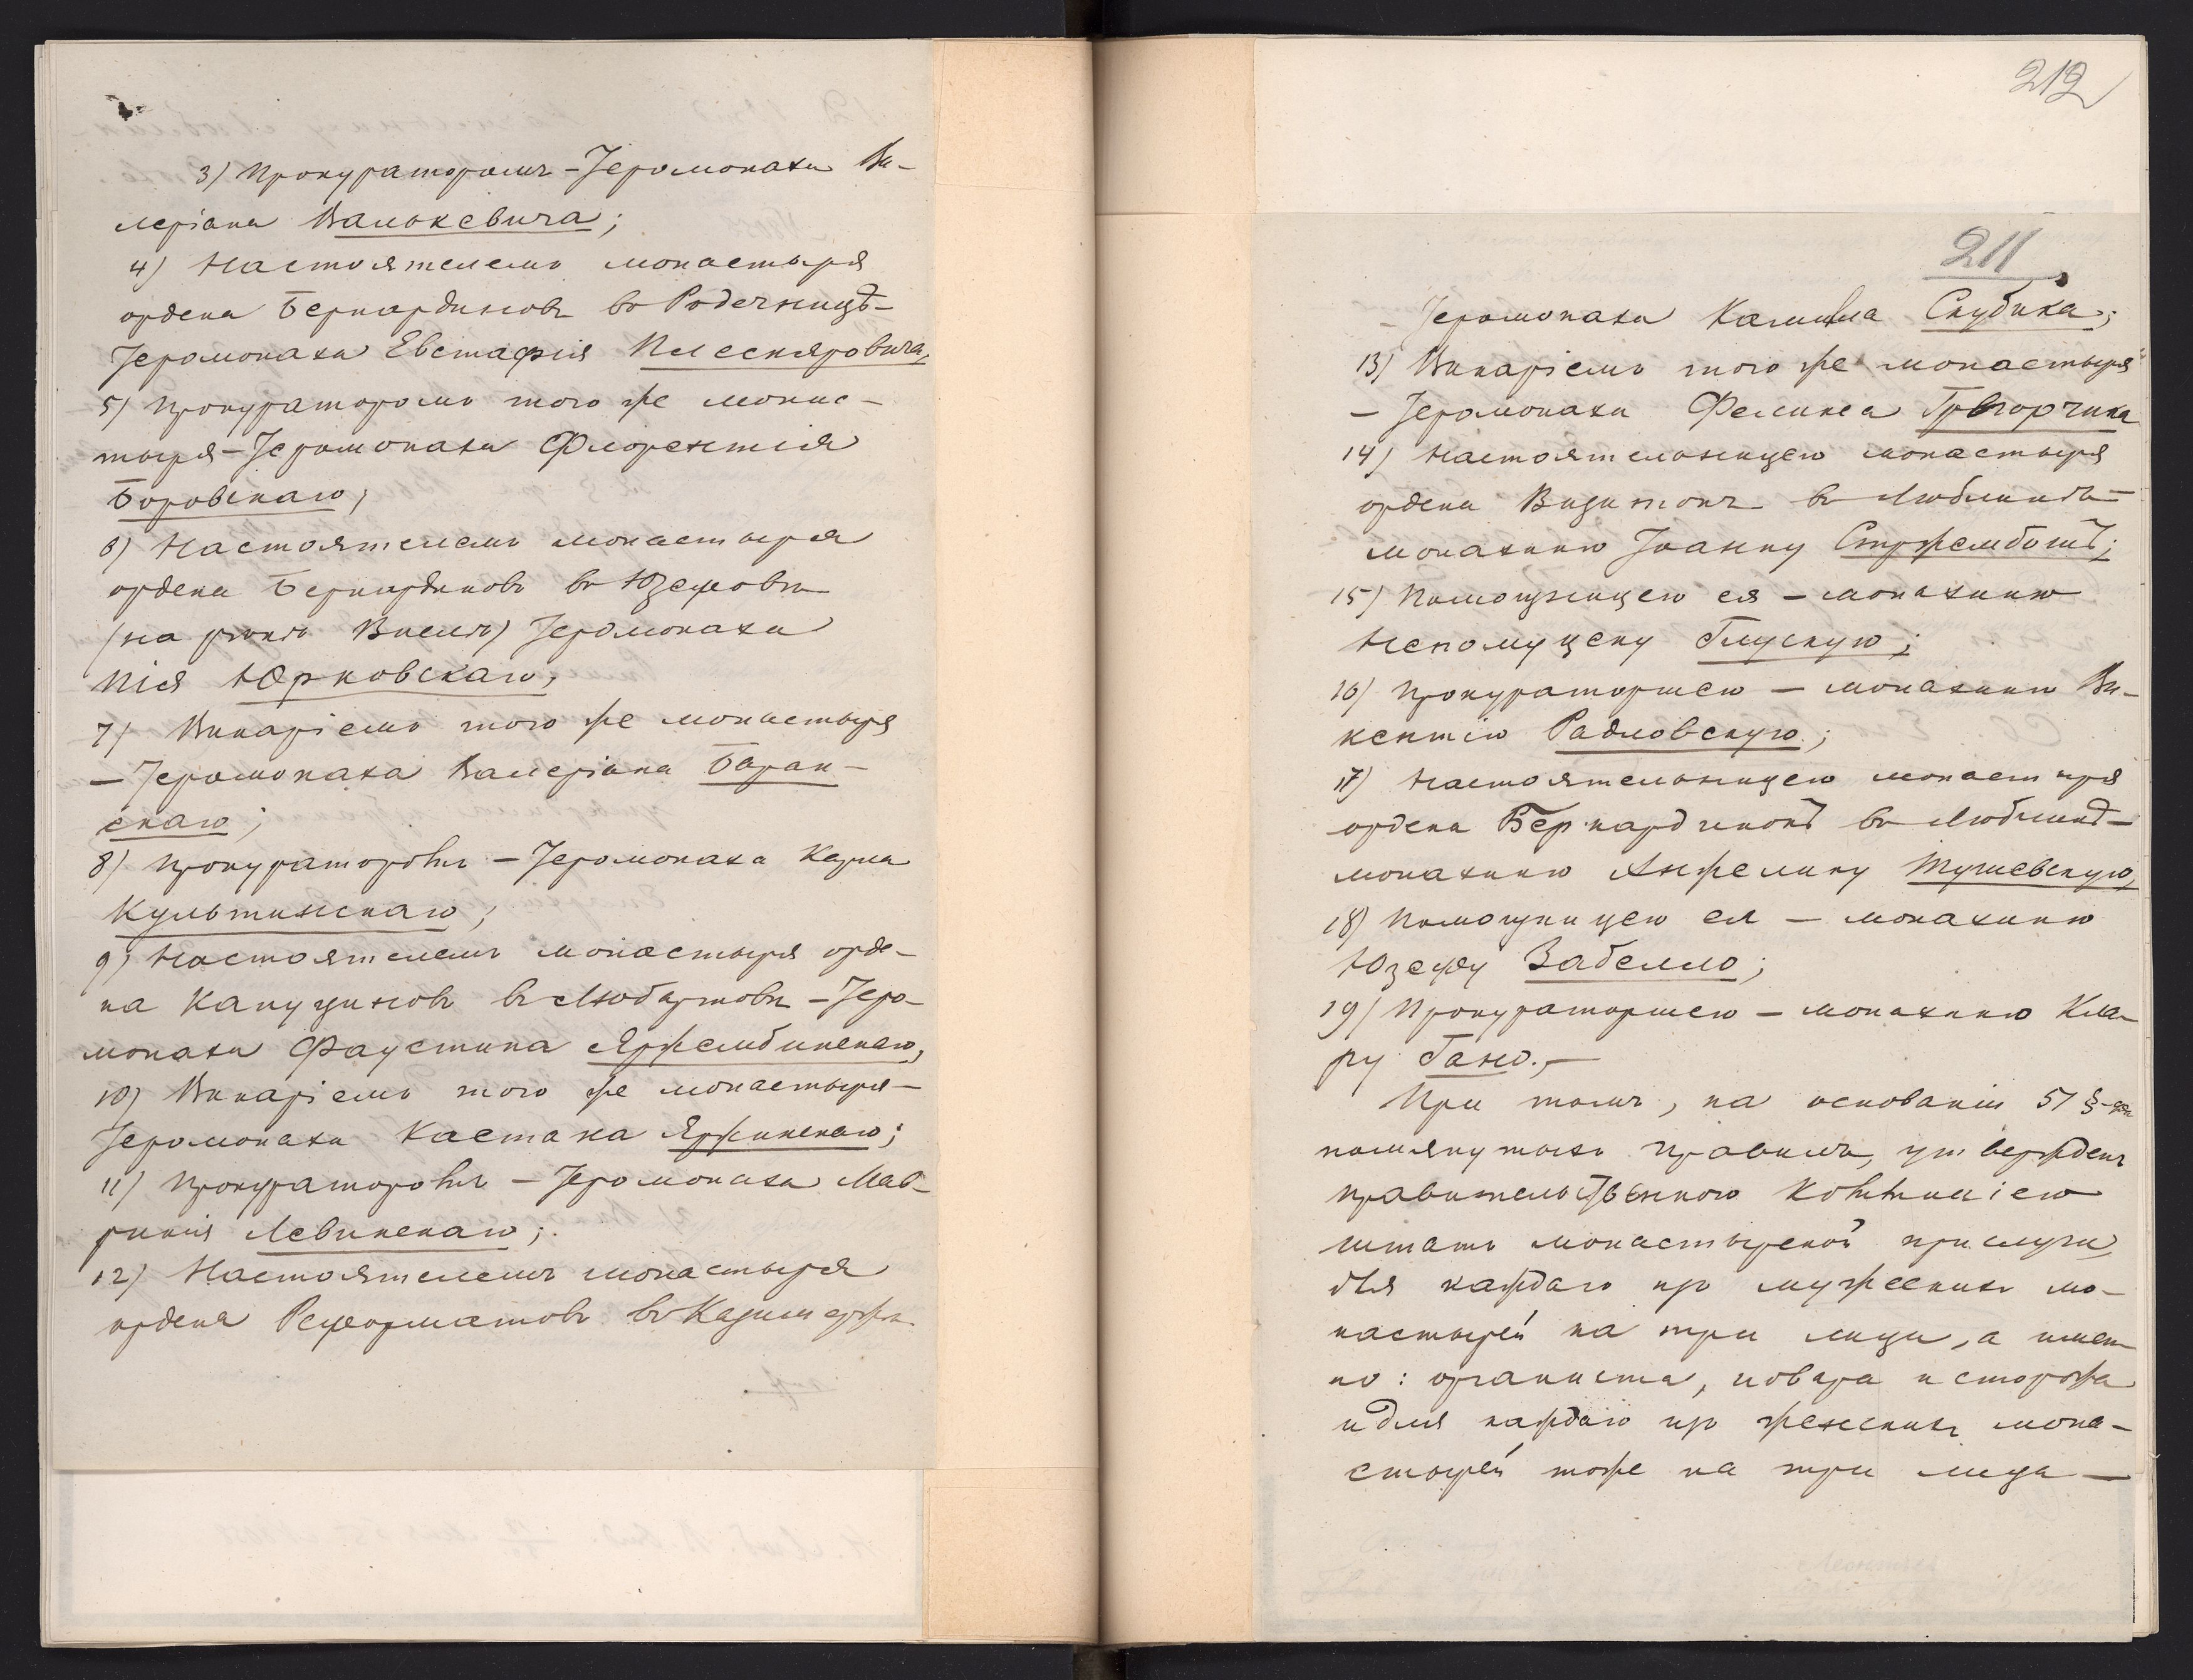 3) Прокураторомъ – Іеромонаха Ва-
леріана Валькевича;
4) Настоятелемъ монастыря
ордена Бернардиновъ въ Радечницѣ –
Іеромонаха Евстафія Плескяровича,
5) Прокураторомъ того же монас-
тыря – Іеромонаха Флорентія
Боровскаго;
6) Настоятелемъ монастыря
ордена Бернардиновъ въ Юзефовѣ
(на рѣкѣ Вислѣ) Іеромонаха
Пія Юрковскаго,
7) Викаріемъ того же монастыря
– Іеромонаха Валеріана Баран-
скаго;
8) Прокураторомъ – Іеромонаха Карла
Культинскаго;
9) Настоятелемъ монастыря орде-
на Капуциновъ въ Любартовѣ – Іеро-
монаха Фаустина Яржембинскаго,
10) Викаріемъ того же монастыря –
Іеромонаха Каетана Яржинскаго;
11) Прокураторомъ – Іеромонаха Мав-
рикія Левинскаго;
12) Настоятелемъ монастыря
ордена Реформатовъ въ Казимержѣ
212
211
– Іеромонаха Камилла Скубика;
13) Викаріемъ того же монастыря
– Іеромонаха Феликса Грегорчика
14) Настоятельницею монастыря
ордена Визитокъ въ Люблинѣ –
монахиню Іоанну Стржембошъ;
15) Помощницею ея – монахиню
Непомуцену Глускую;
16) Прокураторшею – монахиню Ви-
кентію Радловскую;
17) Настоятельницею монастыря
ордена Бернардинокъ въ Люблинѣ –
монахиню Анжелику Тушевскую,
18) Помощницею ея – монахиню
Юзефу Забелло;
19) Прокураторшею – монахиню Кла-
ру Гано. –
При томъ, на основаніи 51 §
помянутыхъ правилъ, утвержденъ
Правительственною Коммисіею
штатъ монастырской прислуги
для каждаго изъ мужескихъ мо-
настырей на три лица, а имен-
но: органиста, повара и сторожа
и для каждаго изъ женскихъ мона-
стырей тоже на три лица –